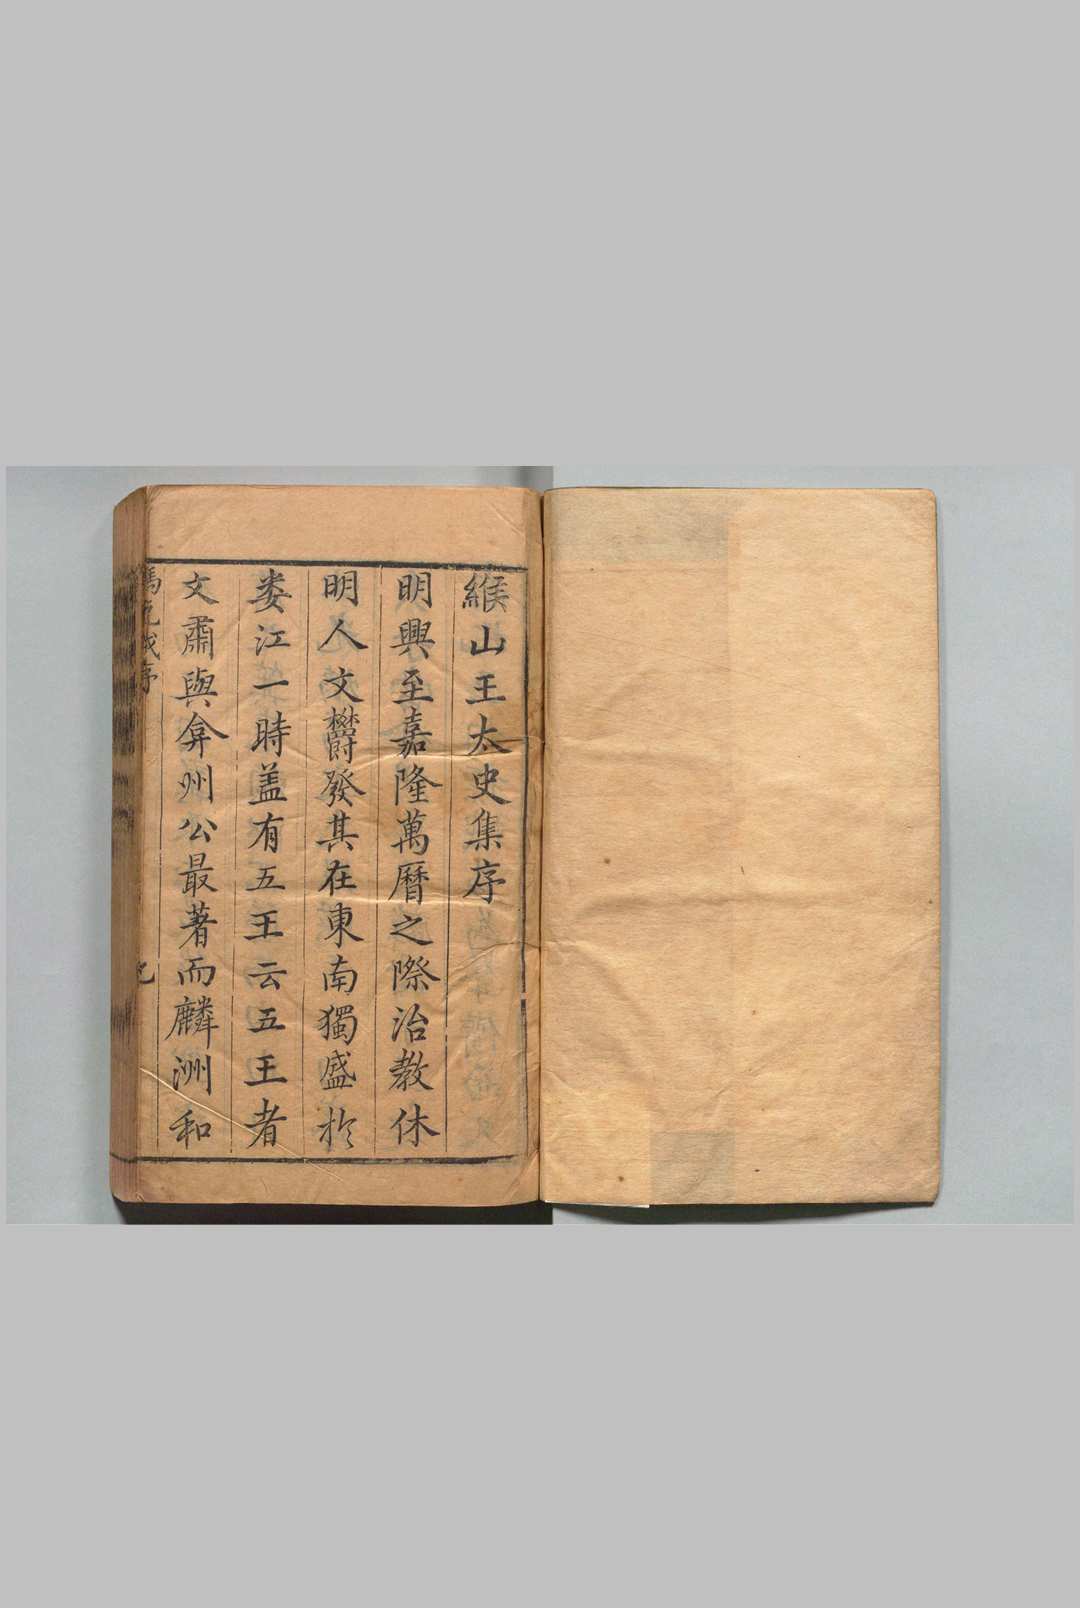 緱山王太史集序
明興至嘉隆萬曆之際治教休
明人文欝發其在東南獨盛於
婁江一時盖有五王云五王者
文肅與弇州公最著而麟洲和
序